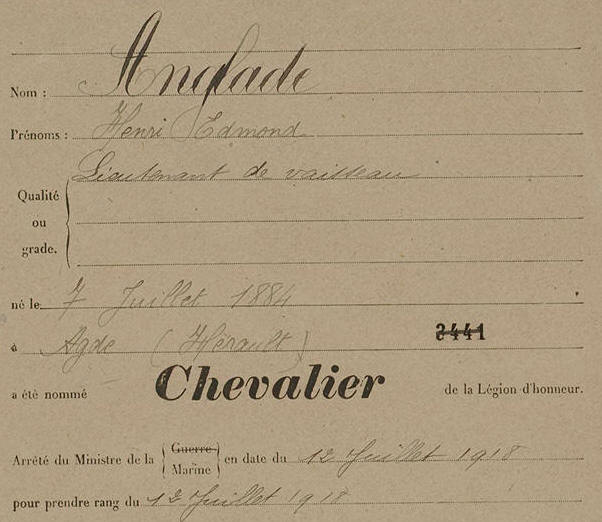 Nom : Anglade
Prénoms : Henri Edmond
Lieutenant de vaisseau
Qualité
ou
grade.
né le 7 Juillet 1884
à Agde (Hérault) 3441
a été nommé Chevalier de la Légion d'honneur.
Arrêté du Ministre de la { Guerre Marine } en date du 12 Juillet 1918
pour prendre rang du 12 Juillet 1918